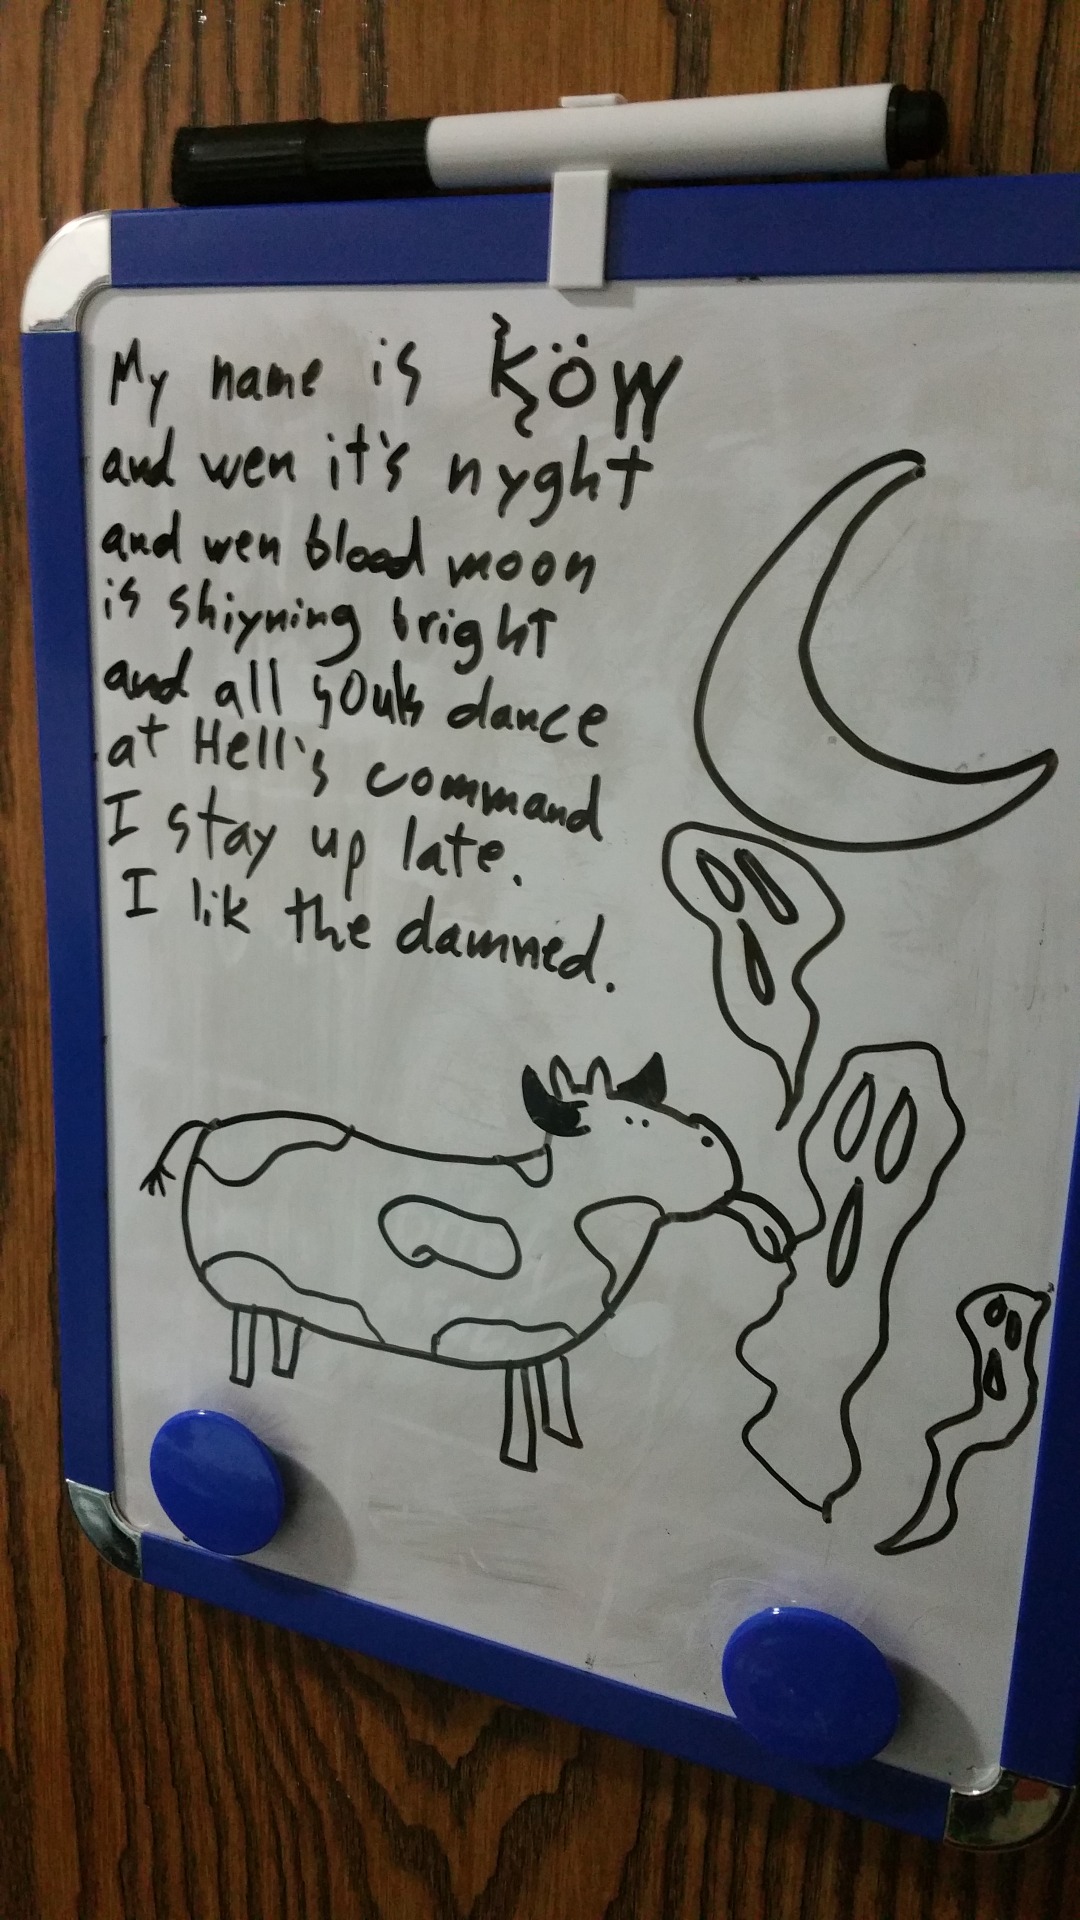 My name is Köw
and wen it's nyght
and wen blood moon
is shiyning bright
and all souls dance
at Hell's command
I stay up late.
I lik the damned.